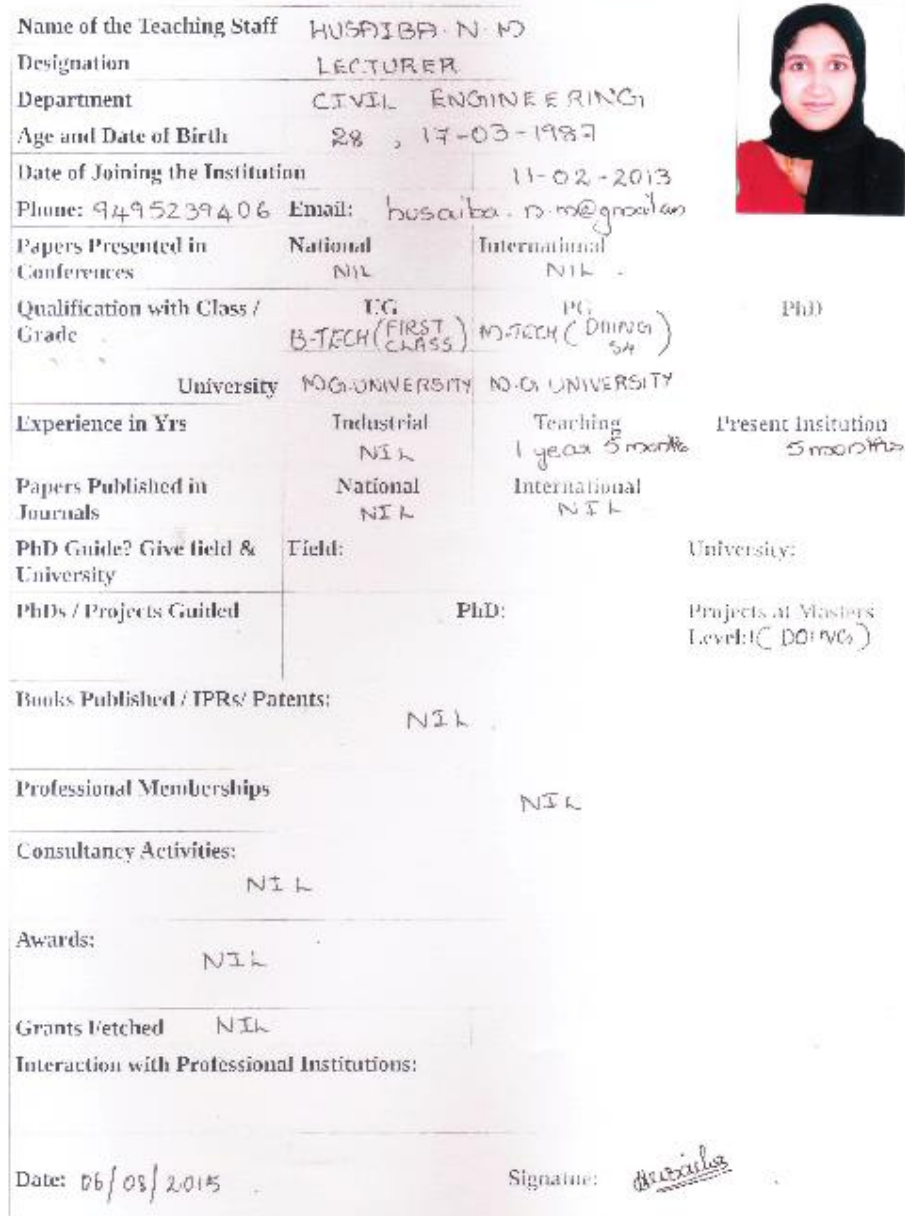 Name of the Teaching Staff HUSAIBA. N. M
Designation LECTURER
Department CIVIL ENGINEERING
Age and Date of Birth 28 , 17-03-1987
Date of Joining the Institution 11-02-2013
Phone: 9495239406 Email: husaiba.n.m@gmail
Papers Presented in National International
Conferences NIL NIL
Qualification with Class / UG PG PhD
Grade B-TECH (FIRST CLASS) M-TECH (DOING S4)
University M.G.UNIVERSITY M.G. UNIVERSITY
Experience in Yrs Industrial Teaching Present Insitution
NIL 1 year 5 months 5 months
Papers Published in National International
Journals NIL NIL
PhD Guide? Give field & Field: University:
University
PhDs / Projects Guided PhD: Projects at Masters
Level: (DOING)
Books Published / IPRs/ Patents:
NIL
Professional Memberships NIL
Consultancy Activities:
NIL
Awards:
NIL
Grants Fetched NIL
Interaction with Professional Institutions:
Date: 06/08/2015 Signatue: Husaiba